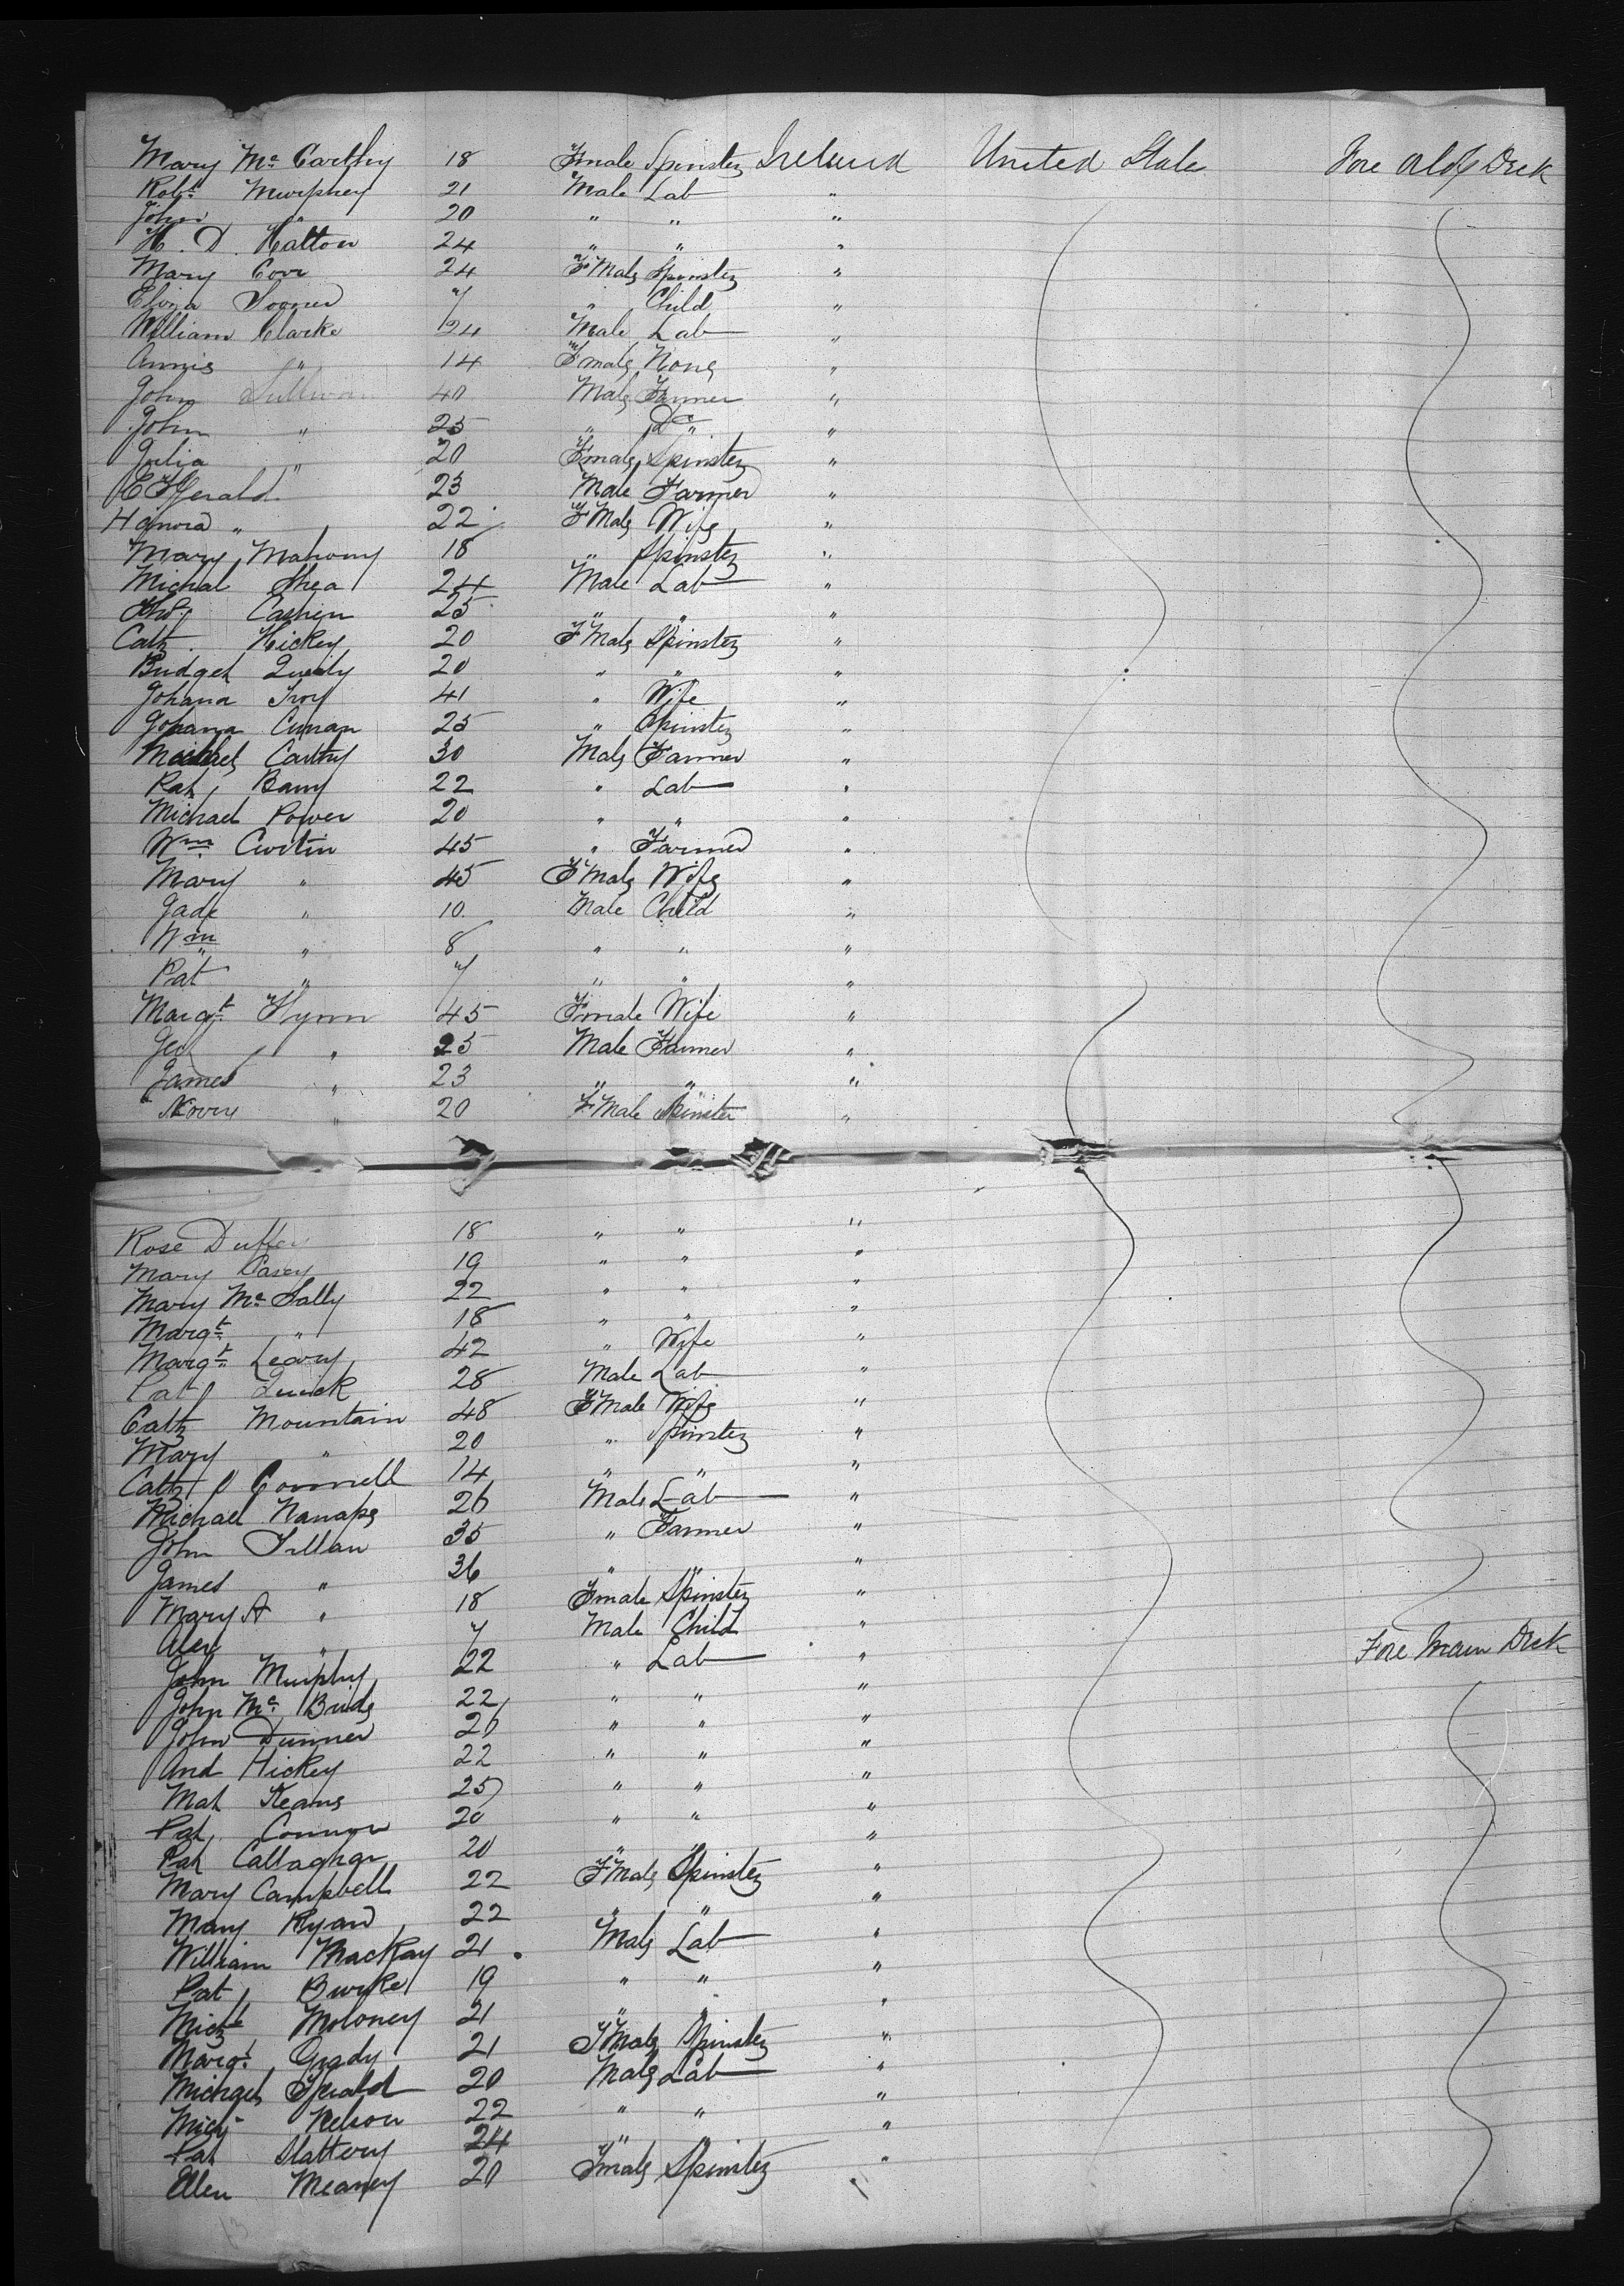 Mary Mc Carthy 18 Fmale Spinster Ireland United State Fore Deck
Robt Murphey 21 Male Lab "
John " 20 " " "
H. D. Hatton 24 " " "
Mary Corr 24 F Male Spinster "
Eliza 7 " Child "
William Clarke 24 Male Lab "
Annie " 14 Fmale None "
John Sullivan 40 Male Farmer "
John " 25 " Do "
Julia " 20 Fmale Spinster "
23 Male Farmer "
Hanora " 22 F Male Wife "
Mary Mahony 18 " Spinster "
Michal Shea 24 Male Lab "
Thos Cashin 25 " " "
Cath Hickey 20 F Male Spinster "
Bridget 20 " " "
Johana Troy 41 " Wife "
Johana 25 " Spinster "
Michael Carthy 30 Male Farmer "
Pat Barry 22 " Lab "
Michael Power 20 " " "
Wm Curtin 45 " Farmer "
Mary " 45 F Male Wife "
" 10 Male Child "
Wm " 8 " " "
Pat " 7 " " "
Margt Flynn 45 Fmale Wife "
" 25 Male Farmer "
James " 23 " " "
" 20 F Male Spinster "
Rose 18 " " "
Mary Casey 19 " " "
Mary Mc 22 " " "
Margt " 18 " " "
Margt Leary 42 " Wife "
Pat Quick 28 Male Lab "
Cath Mountain 48 F Male Wife "
Mary " 20 " Spinster "
Cath O Connell 14 " " "
Michael 26 Male Lab "
John 35 " Farmer "
James " 36 " " "
Mary A " 18 Fmale Spinster "
Alex " 7 Male Child "
John Murphy 22 " Lab " Fore Main Deck
John Mc 22 " " "
John 26 " " "
And Hickey 22 " " "
Mat Keans 25 " " "
Pat Connor 20 " " "
Pat Callaghan 20 " " "
Mary Campbell 22 F Male Spinster "
Mary Ryan 22 " " "
William MacKay 21 Male Lab "
Pat Burke 19 " " "
Mich Moloney 21 " " "
Margt Grady 21 F Male Spinster "
Michael 20 Male Lab "
Nelson 22 " " "
Pat Slattery 24 " " "
Ellen Meaney 20 Fmale Spinster "